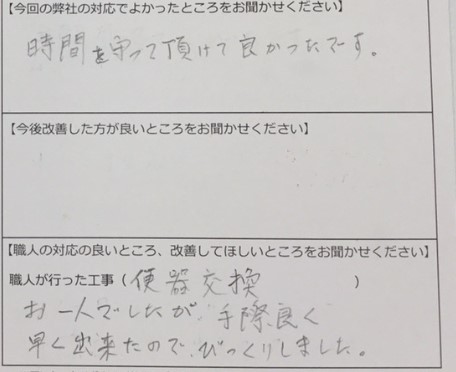 【今回の弊社の対応でよかったところをお聞かせください】
時間を守って頂けて良かったです。
【今後改善した方が良いところをお聞かせください】
【職人の対応の良いところ、改善してほしいところをお聞かせください】
職人が行った工事（便器交換）
お一人でしたが、手際良く
早く出来たので、びっくりしました。